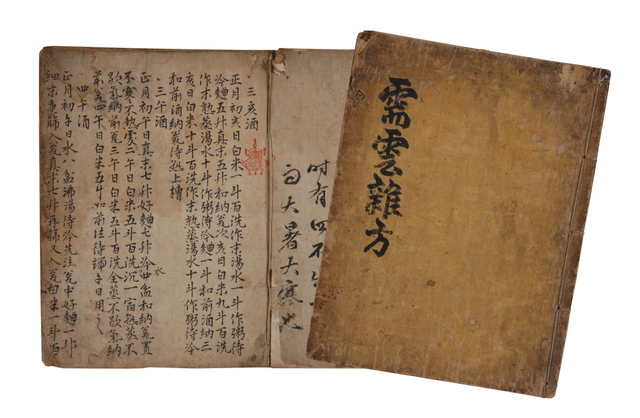 、三亥酒
正月初亥日白米一斗百洗作末湯水一斗作粥待
冷麯五升真末五升和納瓮次亥日白米九斗百洗
作末熟蒸湯水十斗作粥待冷麯一斗和前酒納三
亥日白米十斗百洗作末熟蒸湯水十斗作粥待冷
和前酒納瓮待熟上槽
、三午酒
正月初午日真末七升好麯七升冷水盆和納瓮置
不寒不熱處二午日白米五斗百洗沉一宿熟蒸不
歇氣納前瓮三午日白米五斗百洗全蒸不歇氣納
前瓮四午日白米五斗如前法待端午日用之
四午酒
正月初午日水八盆沸湯待冷先注瓮中好麯一升
細末重篩入瓮真末七升再篩又入瓮白米一斗百
時有四不
大暑大寒也
需雲雜方